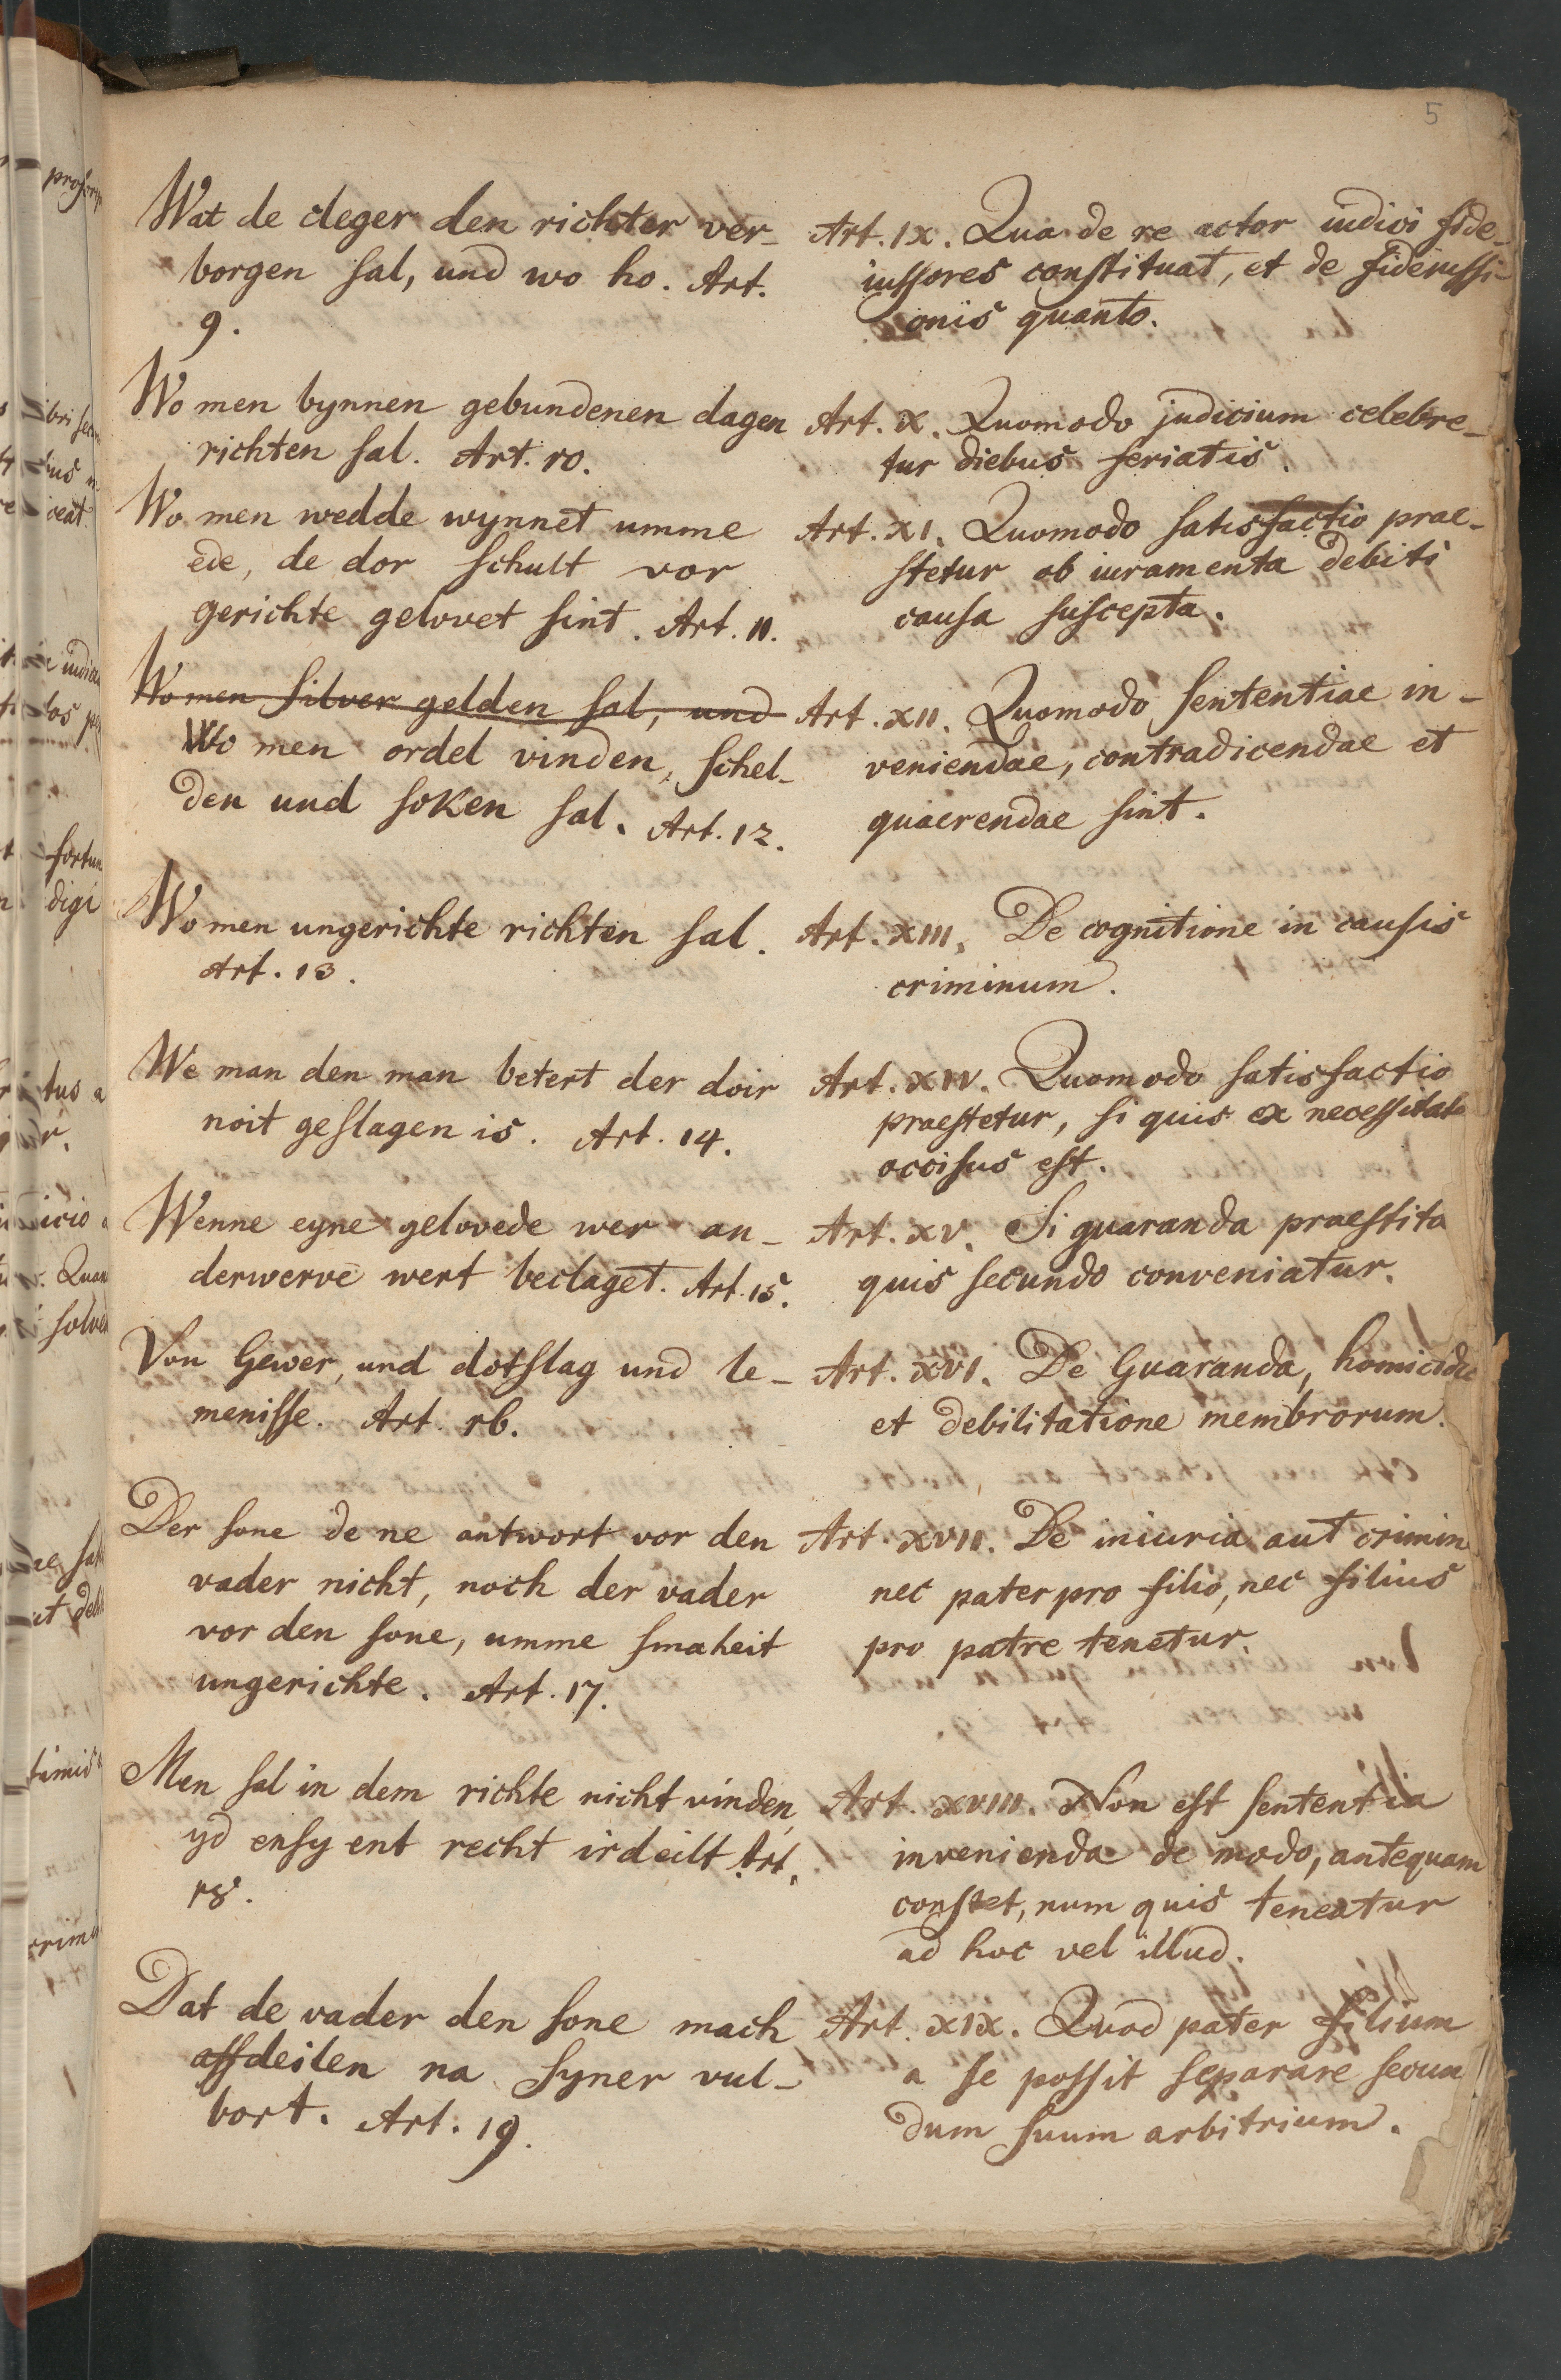 5
Wat de cleger den richter ver-
borgen sal, und wo ho. Art.
9.
Art. IX. Qua de re actor iudici fide-
iussores constituat, et de fideiussi-
onis quanto.
Wo men bynnen gebundenen dagen
richten sal. Art. 10.
Art. X. Quomodo judicium celebre-
tur diebus feriatis.
Wo men wedde wynnet umme
ede, de dor schult vor
gerichte gelovet sint. Art. 11.
Art. XI. Quomodo satisfactio prae-
stetur ob iuramenta debiti
causa suscepta.
Wo men silver gelden sal, und
Wo men ordel vinden, schel-
den und soken sal. Art. 12.
Art. XII. Quomodo sententiae in-
veniendae, contradicendae et
quaerendae sint.
Wo men ungerichte richten sal.
Art. 13.
Art. XIII. De cognitione in causis
criminum.
We man den man betert der doir
noit geslagen is. Art. 14.
Art. XIV. Quomodo satisfactio
praestetur, si quis ex necessitate
occisus est.
Wenne eyne gelovede wer an-
derwerve wert beclaget. Art. 15.
Art. XV. Si guaranda praestita
quis secundo conveniatur.
Von Gewer, und dotslag und le-
menisse. Art. 16.
Art. XVI. De Guaranda, homicidio
et debilitatione membrorum.
Der sone de ne antwort vor den
vader nicht, noch der vader
vor den sone, umme smaheit
ungerichte. Art. 17.
Art. XVII. De iniuria aut crimin
nec pater pro filio, nec filius
pro patre tenetur.
Men sal in dem richte nicht vinden,
yd ensy ent recht irdeilt Art.
18.
Art. XVIII. Non est sententia
invenienda de modo, antequam
constet, num quis teneatur
ad hoc vel illud.
Dat de vader den sone mach
affdeilen na syner vul-
bort. Art. 19.
Art. XIX. Quod pater filium
a se possit separare secun
dum suum arbitrium.